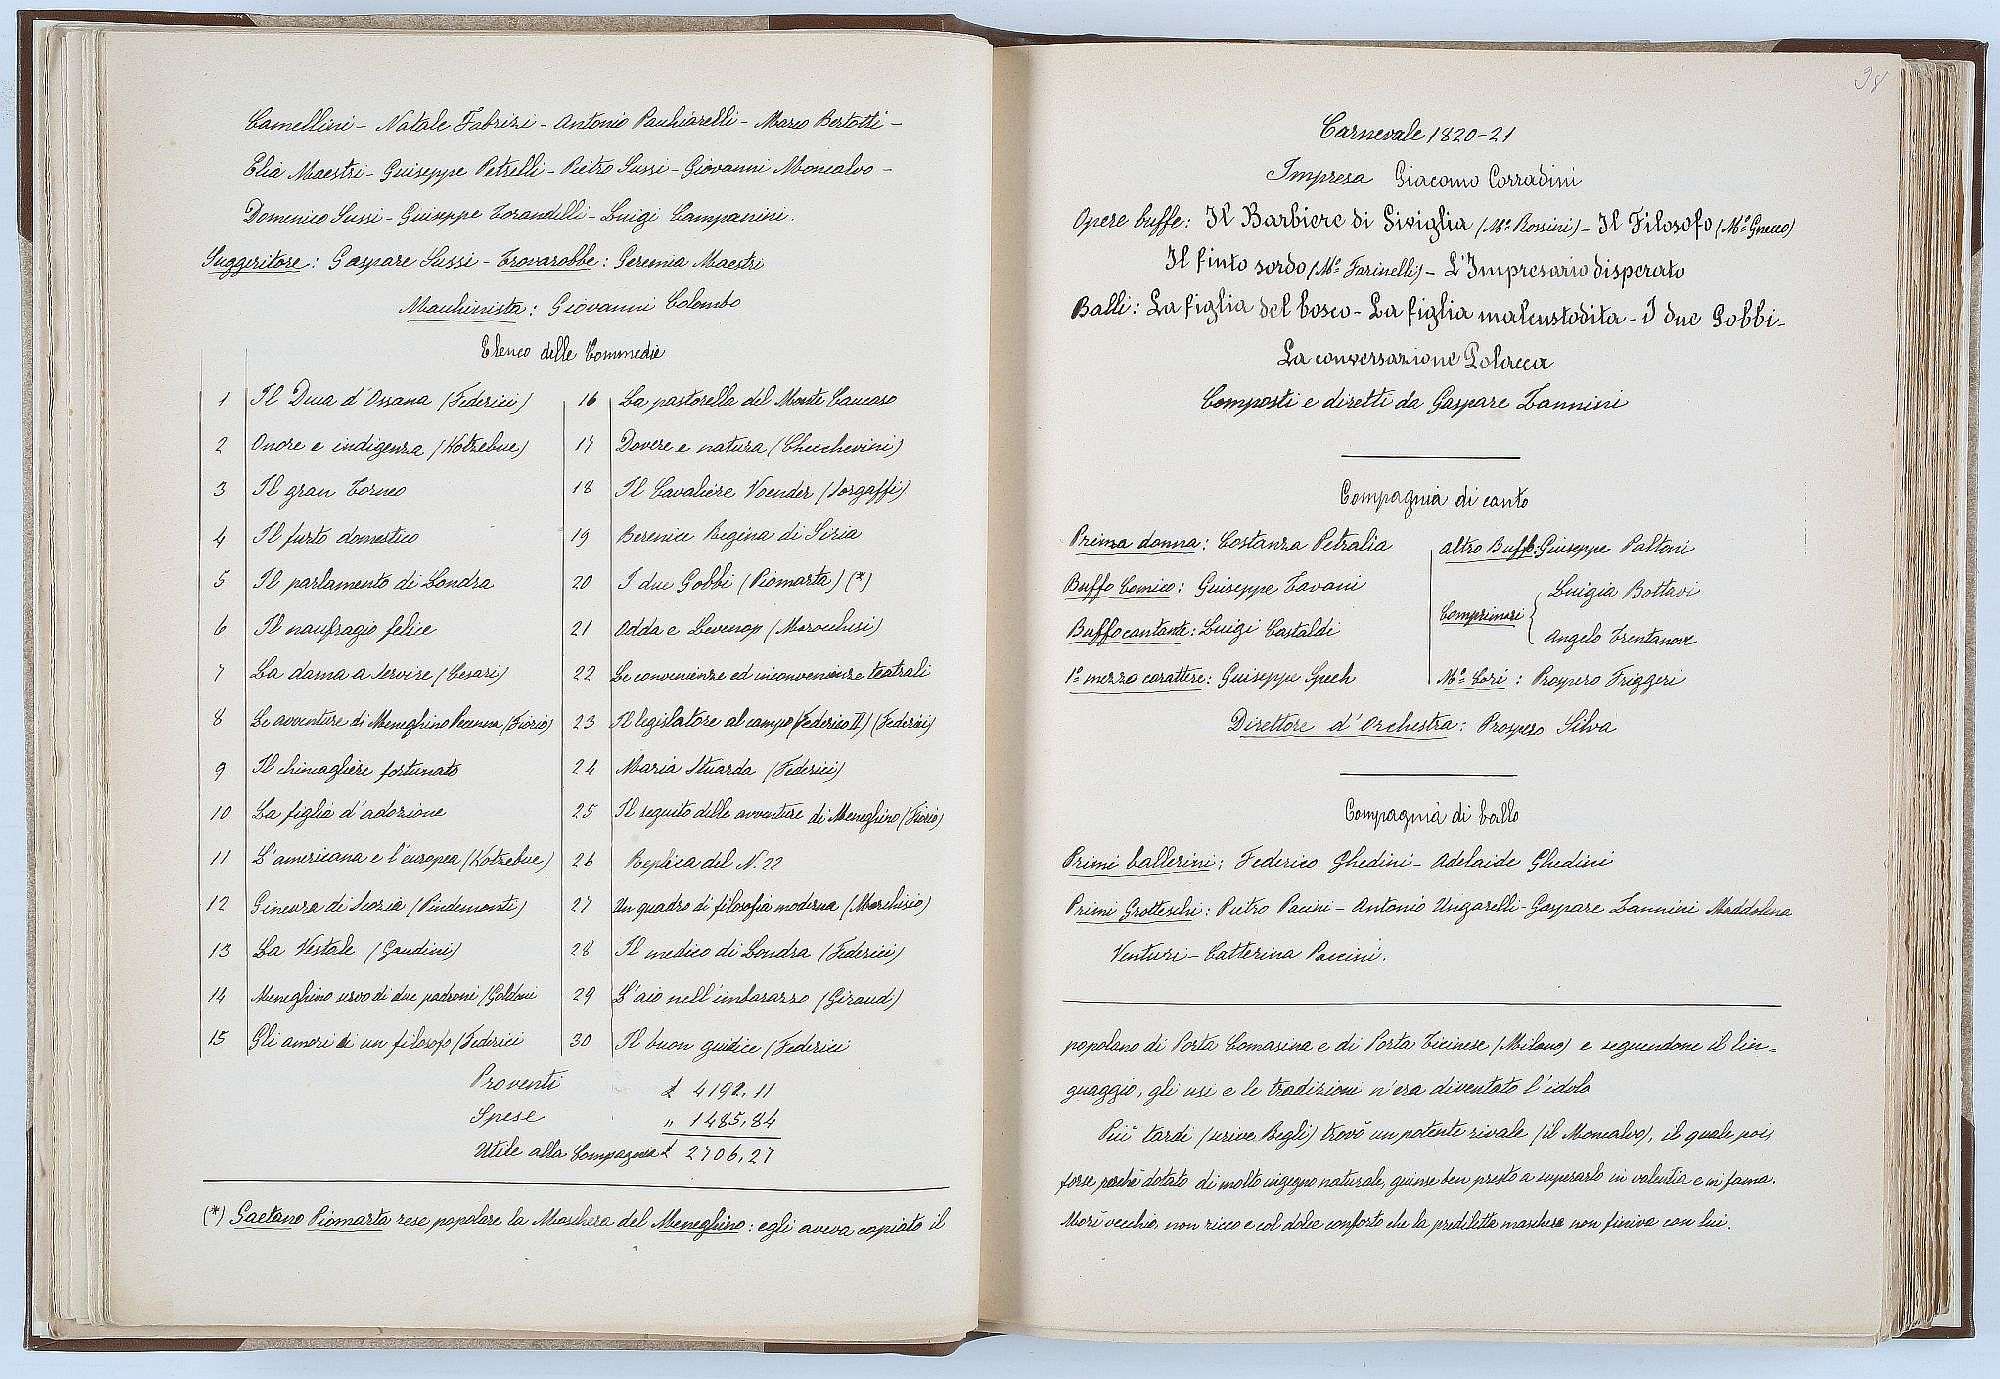 Camellini - Natale Fabrizi - Antonio Pauhiarelli - Marco Bertotti -
Elia Maestri - Guiseppe Petrelli - Pietro Sussi - Giovanni Moncalvo -
Domenico Sussi - Guiseppe Torandelli - Luigi Campanini.
Suggeritore: Gaspare Sussi - Trovarobbe: Geremia Maestri
Macchinista: Giovanni Colombo
Elenco delle Commedie
1 Il Duca d'Ossana (Federici)
2 Onore e indigenza (Kotzebue)
3 Il gran Torneo
4 Il furto domestico
5 Il parlamento di Londra
6 Il naufragio felice
7 La dama a servire (Cesari)
8 Le avventure di Meneghino Pecenna (Fiorio)
9 Il chincagliere fortunato
10 La figlia d'adozione
11 L'americana e l'europea (Kotzebue)
12 Ginevra di Scozia (Pindemonti)
13 La Vestale (Gaudini)
14 Meneghino servo di due padroni (Goldoni
15 Gli amori di un filosofo (Federici
16 La pastorella del Monte Caucaso
17 Dovere e natura (Checcherini)
18 Il Cavaliere Voender (Sorgaffi)
19 Berenice Regina di Siria
20 I due Gobbi (Piomarta) (*)
21 Odda e Levenop (Marocchisi)
22 Le convenienze ed inconvenienze teatrali
23 Il legislatore al campo (Federico II) (Federici)
24 Maria Stuarda (Federici)
25 Il seguito delle avventure di Meneghino (Fiorio)
26 Replica del N. 22
27 Un quadro di filosofia moderna (Marchisio)
28 Il medico di Londra (Federici)
29 L'aio nell'imbarazzo (Giraud)
30 Il buon guidice (Federici
Proventi £ 4192,11
Spese " 1485,84
Utile alla Compagnia £ 2706,27
(*) Gaetano Piomarta rese popolare la Maschera del Meneghino: egli aveva copiato il
34
Carnevale 1820-21
Impresa Giacomo Corradini
Opere buffe: Il Barbiere di Siviglia (Mº Rossini) - Il Filosofo (Mº Gnecco)
Il finto sordo (Mº Farinelli) - L'Impresario disperato
Balli: La figlia del bosco - La figlia malcustodita - I due Gobbi -
La conversazione Polacca
Composti e diretti da Gaspare Zannini
Compagnia di canto
Prima donna: Costanza Petralia
Buffo Comico: Guiseppe Tavani
Buffo cantante: Luigi Castaldi
1º mezzo carattere: Guiseppe Spech
altro Buffo: Guiseppe Paltoni
Comprimari { Luigia Bottavi
Angelo Trentanove
Mº Cori: Prospero Friggeri
Direttore d'Orchestra: Prospero Silva
Compagnia di ballo
Primi ballerini: Federico Ghedini - Adelaide Ghedini
Primi Grotteschi: Pietro Pacini - Antonio Ungarelli - Gaspare Zannini Maddalena
Venturi - Catterina Paccini.
popolano di Porta Comasina e di Porta Ticinese (Milano) e seguendone il lin=
guaggio, gli usi e le tradizioni n'era diventato l'idolo
Più tardi (scrive Regli) trovò un potente rivale (il Moncalvo), il quale poi,
forse perchè dotato di molto ingegno naturale, giunse ben presto a superarlo in valentia e in fama.
Morì vecchio, non ricco e col dolce conforto che la prediletta maschera non finiva con lui.